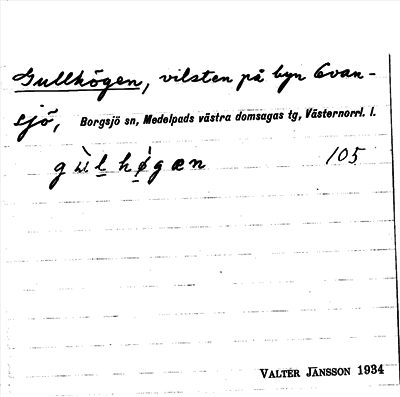 Gullhögen, vilsten på byn Evan-
sjö, Borgsjö sn, Medelpads västra domsagas tg, Västernorrl. l.
gùl̲ hø̲̀gæn 105
VALTER JÄNSSON 1934